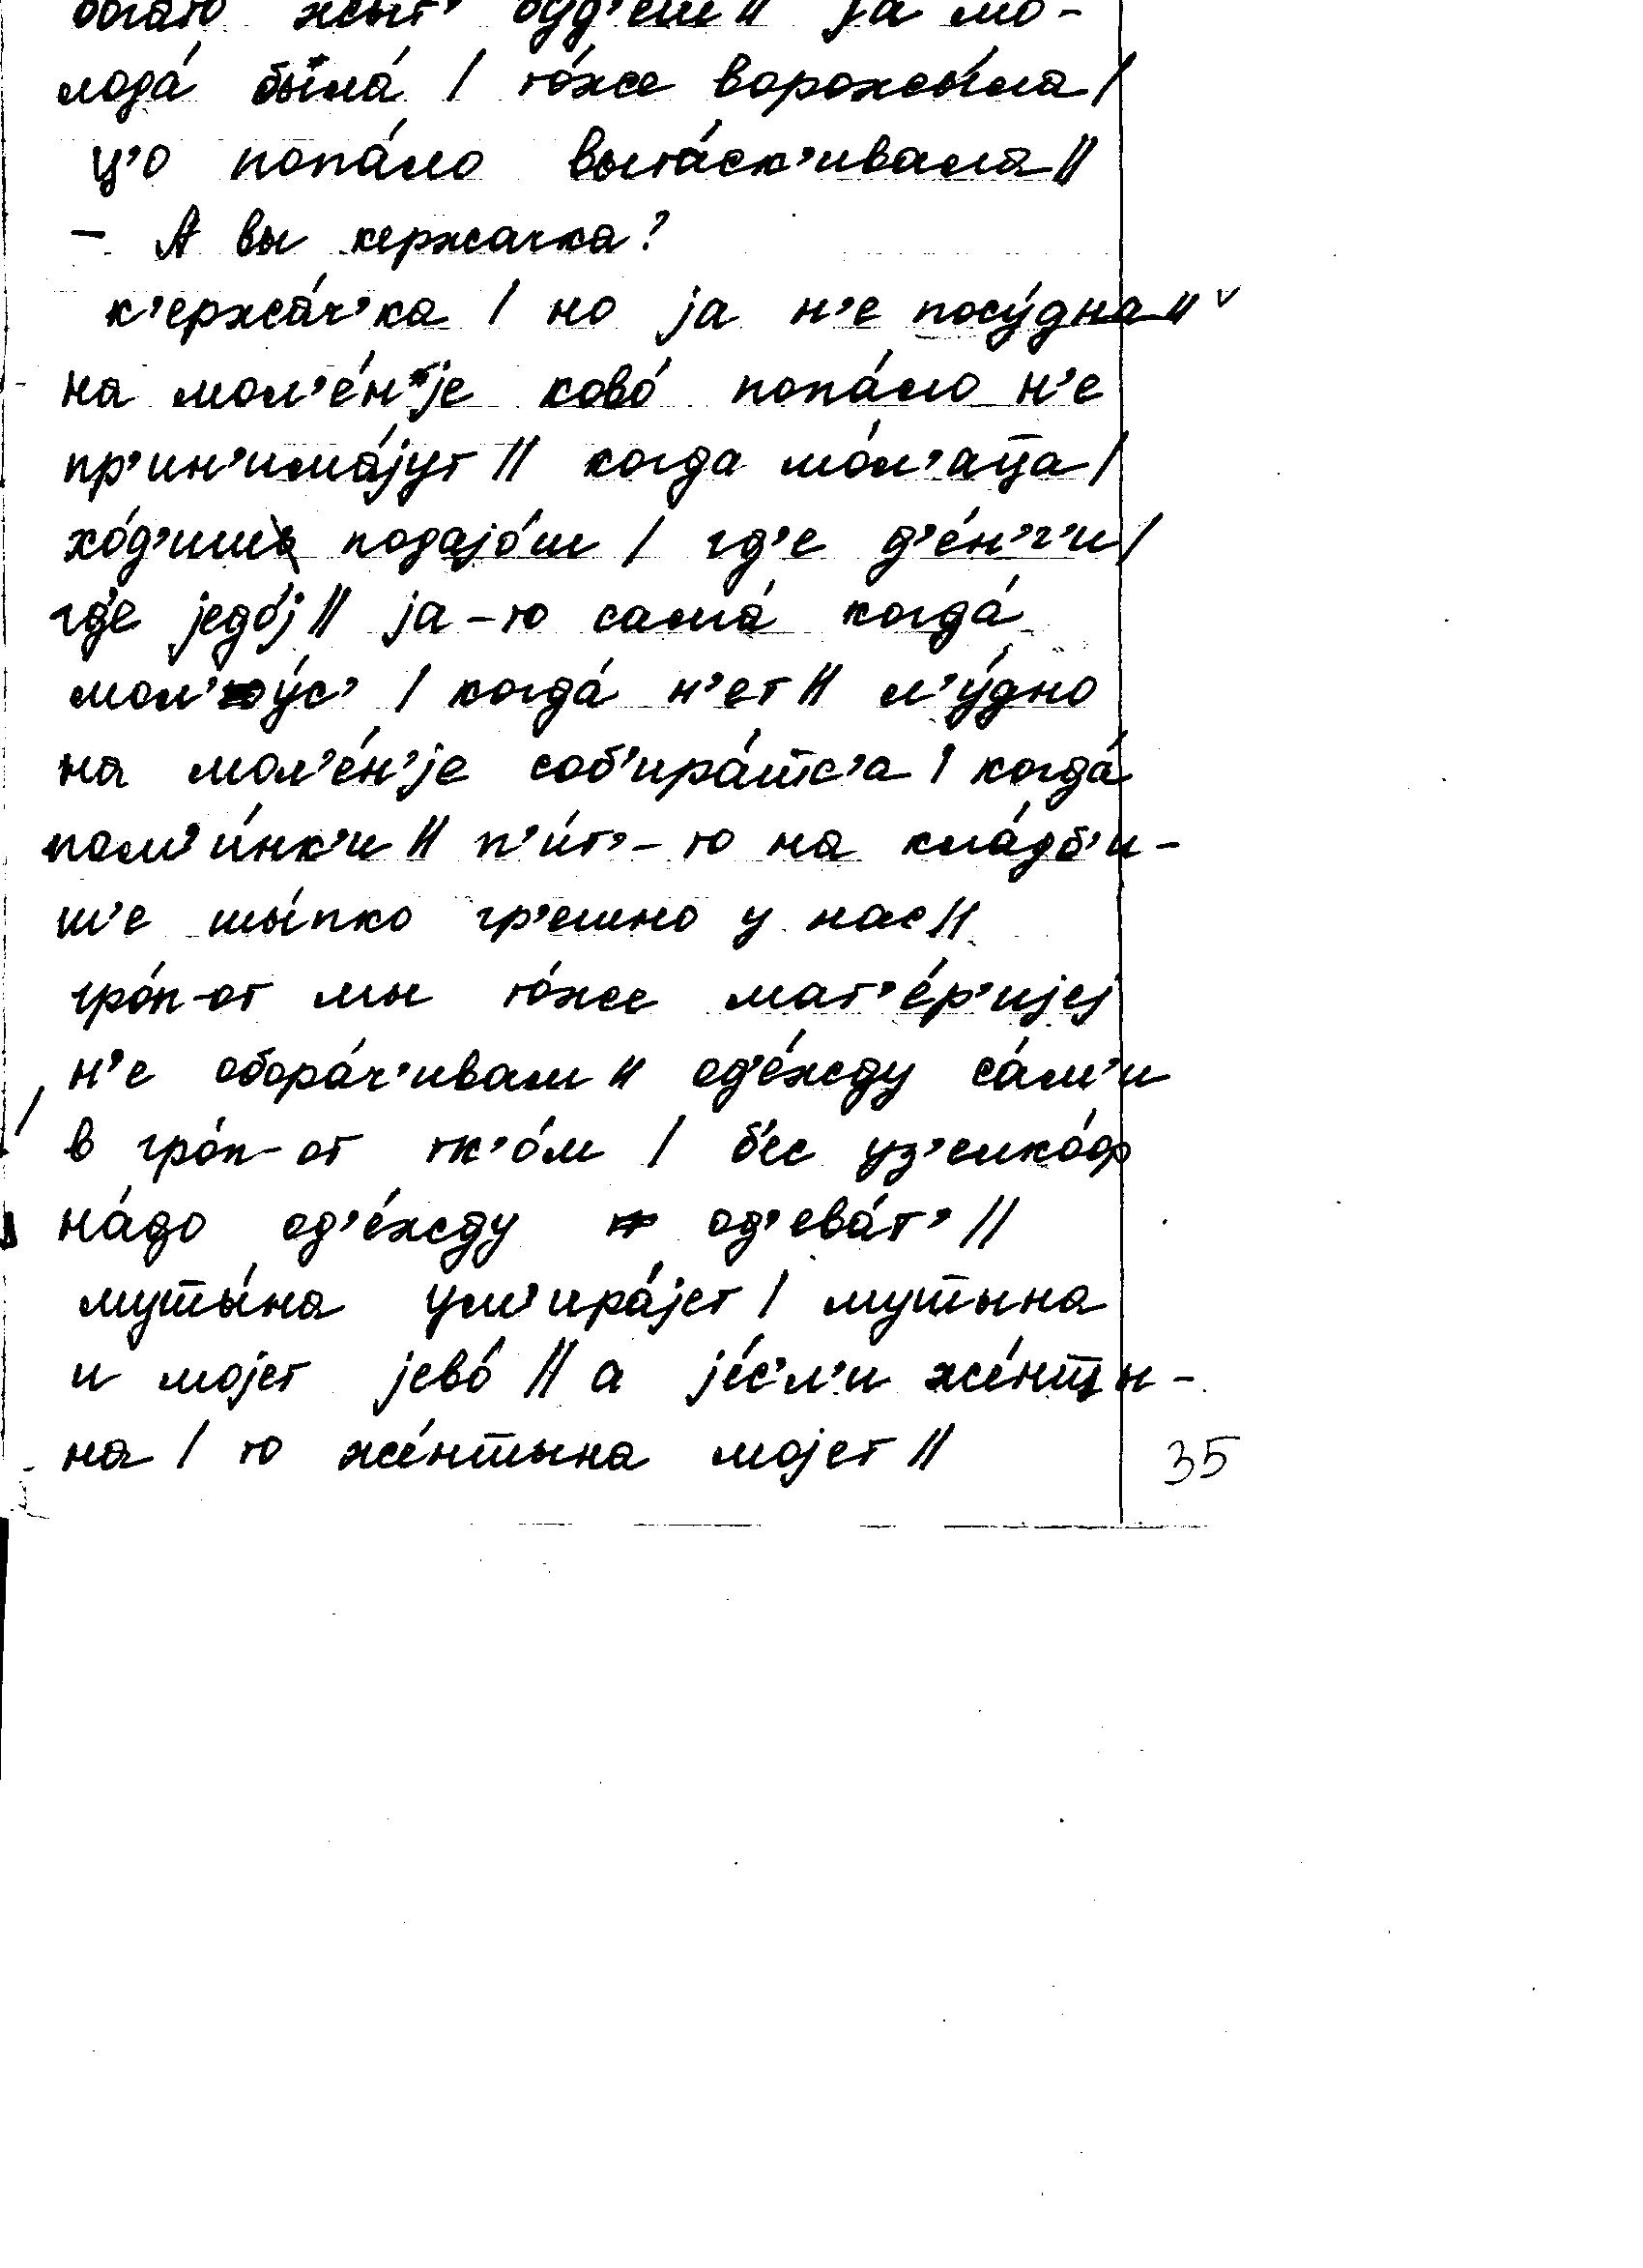 богато жыт' буд'еш // jа мо-
лода́ была́ / то́же ворожы́ла /
ц'о попа́ло выта́ск'ивала //
– А вы кержачка?
к'ержа́ч'ка / но jа н'е посу́дна // ˅
на мол'е́н'jе ково́ попа́ло н'е
пр'ин'има́jут // когда мо́л'аца /
хо́д'иш подаjо́ш / гд'е д'е́н'г'и /
гд'е jедо́j // jа-то сама́ когда́
мол'у́с' / когда́ н'ет // л'у́дно
на мол'е́н'jе соб'ира́тс'а / когда́
пом'и́нк'и // п'и́т'-то на кла́дб'и-
ш'е шы́пко гр'ешно у нас //
гро́п-от мы то́же мат'е́р'иjеj
н'е обора́ч'ивам // од'е́жду са́м'и
в гро́п-от тк'о́м / б'ес уз'елко́ф
на́до од'е́жду од'ева́т' //
мущы́на ум'ира́jет / мущына
и моjет jево́ // а jе́с'л'и же́нщы-
на / то же́нщына моjет //
35